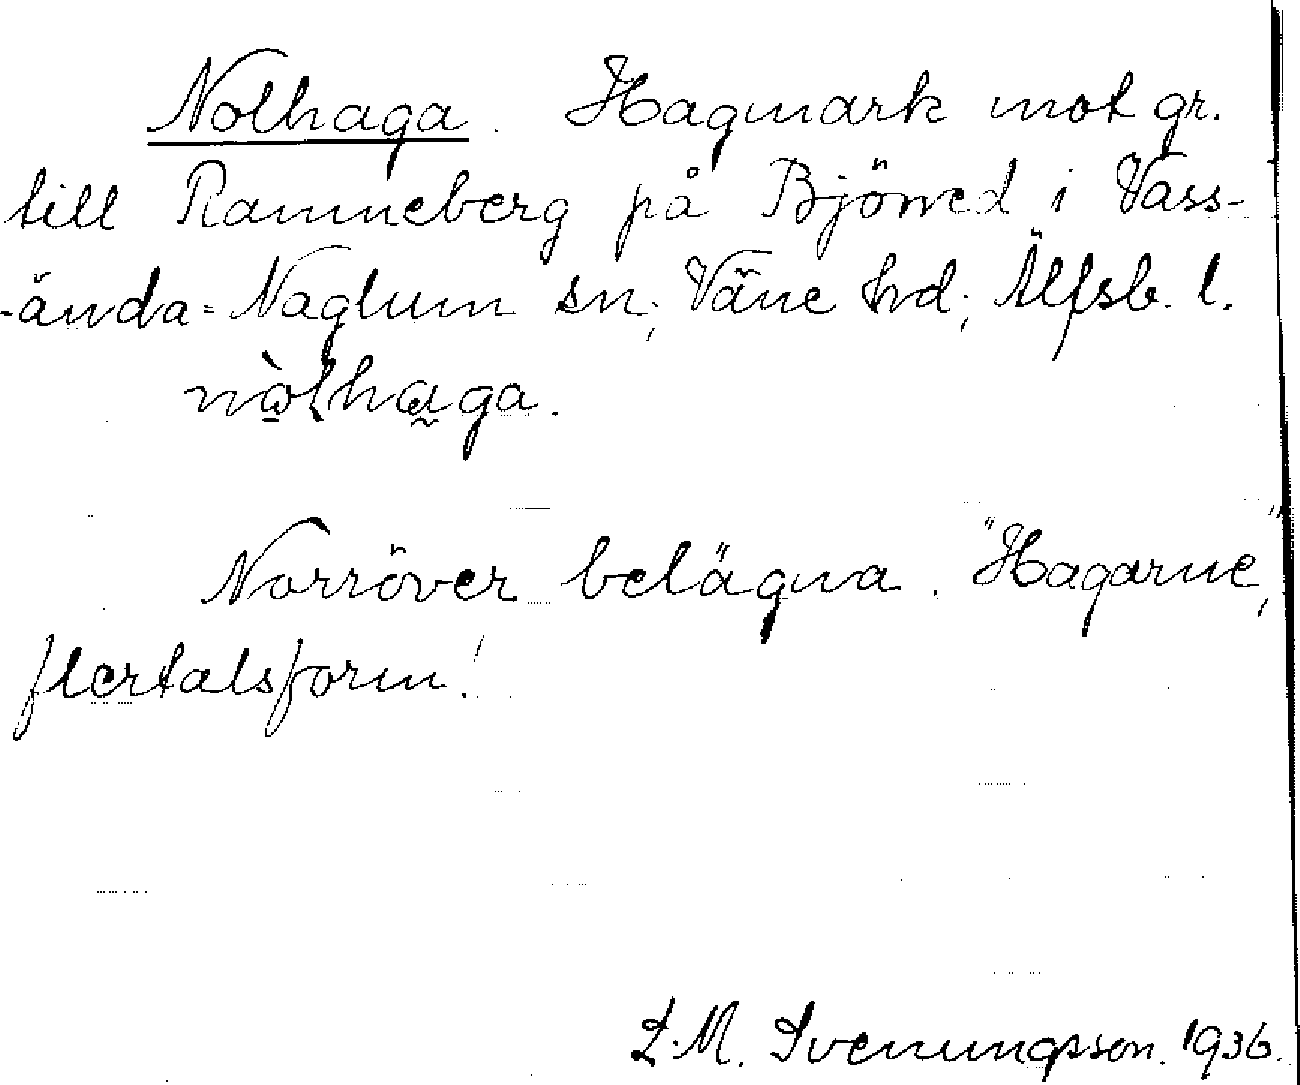 Nolhaga. Hagmark mot gr.
till Ranneberg på Björred i Vass-
-ända-Naglum sn; Väne hrd; Älfsb. l.
nòlhaga.
Norröver belägna. "Hagarne",
flertalsform!
L. M. Svenungsson. 1936.